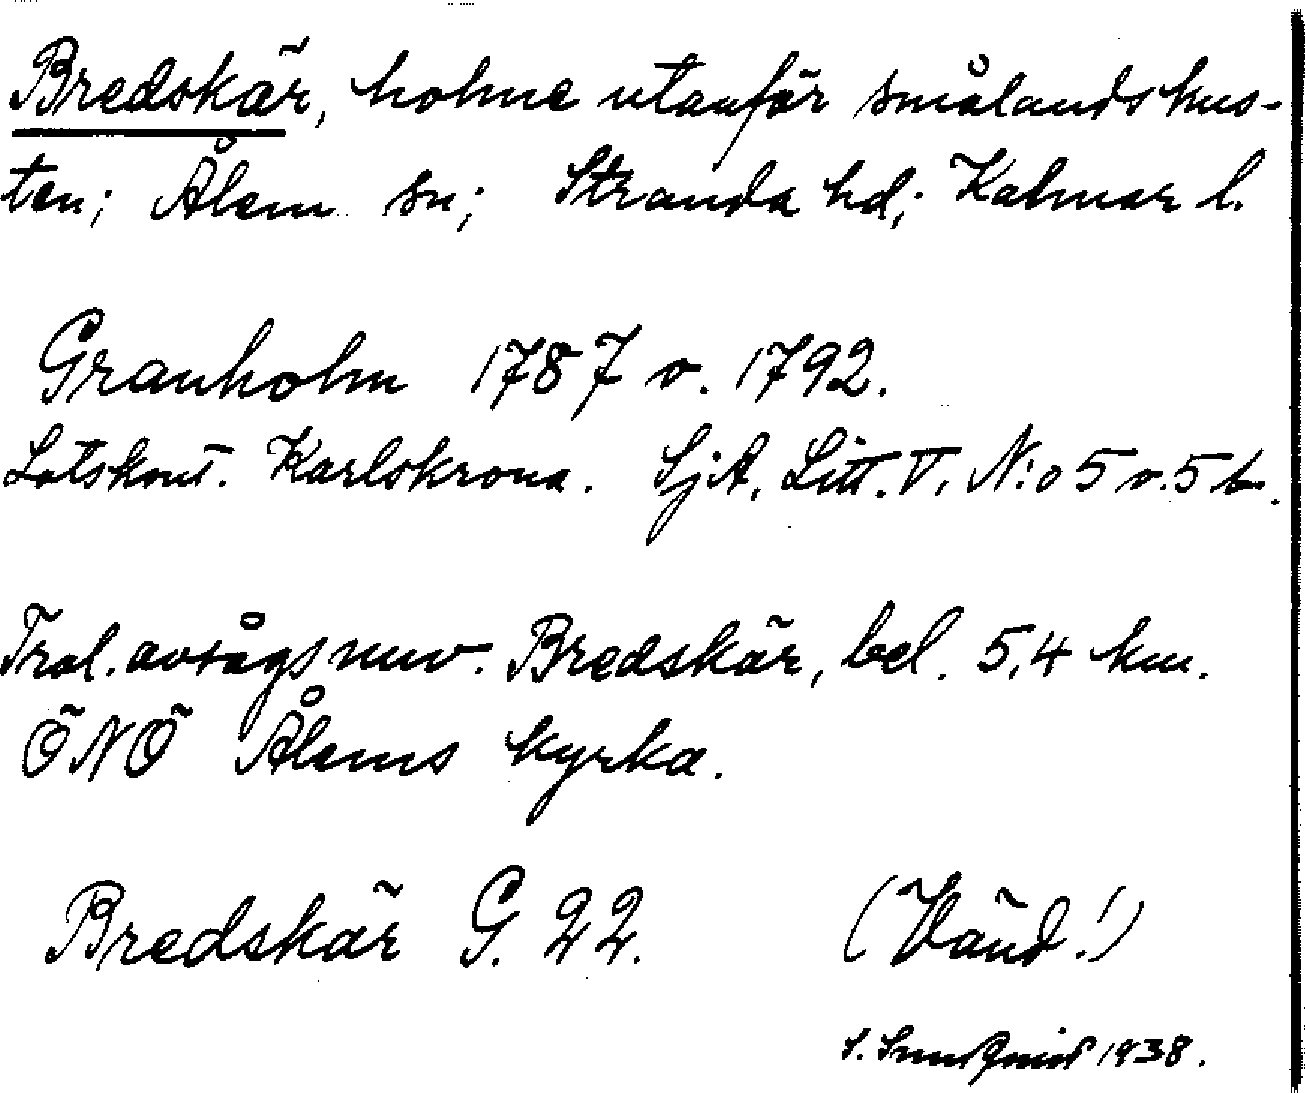 Bredskär, holme utanför smålandskus-
ten; Ålem sn; Stranda hd; Kalmar l.
Granholm 1787 o. 1792.
Lotskont. Karlskrona. SjA, Litt. V, N:o 5 o. 5 b.
Trol. avsågs nuv. Bredskär, bel. 5,4 km.
ÖNÖ Ålems kyrka.
Bredskär G. 22. (Vänd!)
S. 1938.